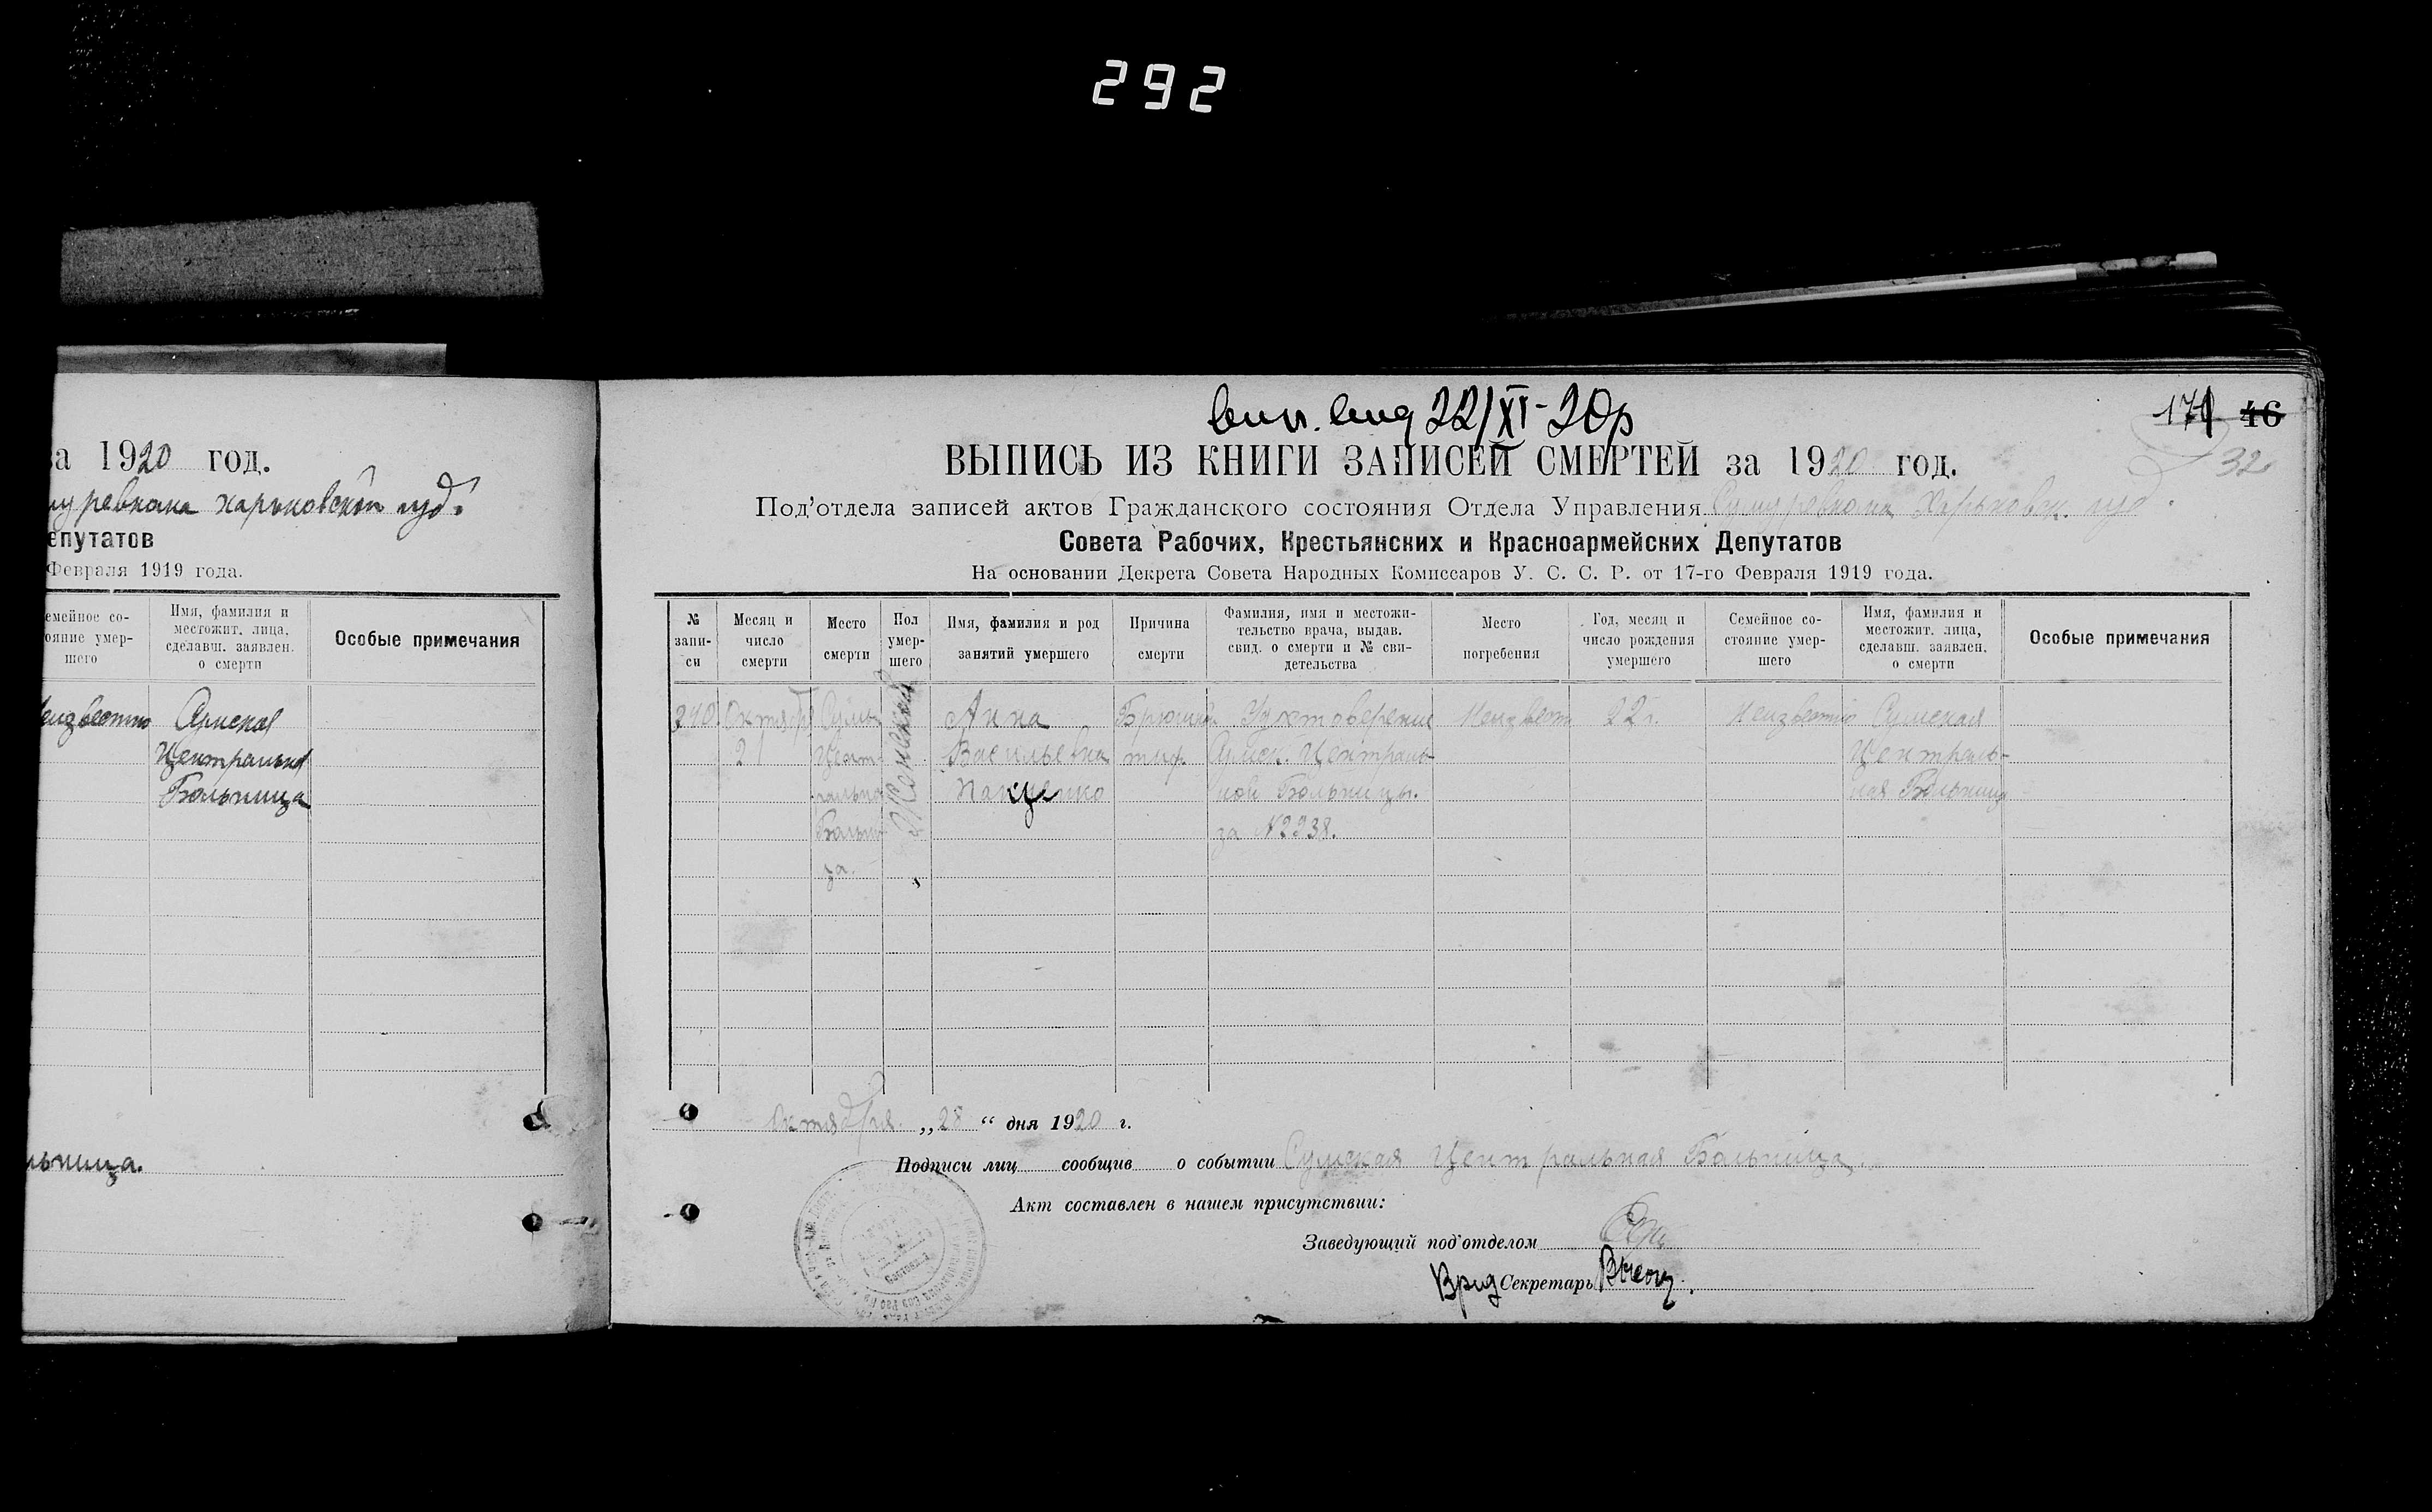 292
за 1920 год.
харьковской губ.
Депутатов
Февраля 1919 года.
Семейное со-
стояние умер-
шего
Имя, фамилия и
местожит. лица,
сделавш. заявлен.
о смерти
Особые примечания
Неизвестно
Сумская
Центральная
Больница
Больница.
22/XI-20р
46
32
ВЫПИСЬ ИЗ КНИГИ ЗАПИСЕЙ СМЕРТЕЙ за 1920 год.
Под'отдела записей актов Гражданского состояния Отдела Управления Сумуревкома Харьковск. губ.
Совета Рабочих, Крестьянских и Красноармейских Депутатов
На основании Декрета Совета Народных Комиссаров У. С. С. Р. от 17-го Февраля 1919 года.
№
запи-
си
Месяц и
число
смерти
Место
смерти
Пол
умер-
шего
Имя, фамилия и род
занятий умершего
Причина
смерти
Фамилия, имя и местожи-
тельство врача, выдав.
свид. о смерти и № сви-
детельства
Место
погребения
Год, месяц и
число рождения
умершего
Семейное со-
стояние умер-
шего
Имя, фамилия и
местожит. лица,
сделавш. заявлен.
о смерти
Особые примечания
240
Октября
21
Женский
Анна
Васильевна
Панченко
Брюшной
тиф
Удостоверение
Сумск. Централь-
ной Больницы.
за №2238.
Неизвест
22 г.
Неизвестно
Сумская
Централь-
ная Больница
Октября „28“ дня 1920 г.
Подписи лиц сообщив о событии Сумская Центральная Больница.
Акт составлен в нашем присутствии:
Заведующий под'отделом
Врид Секретарь